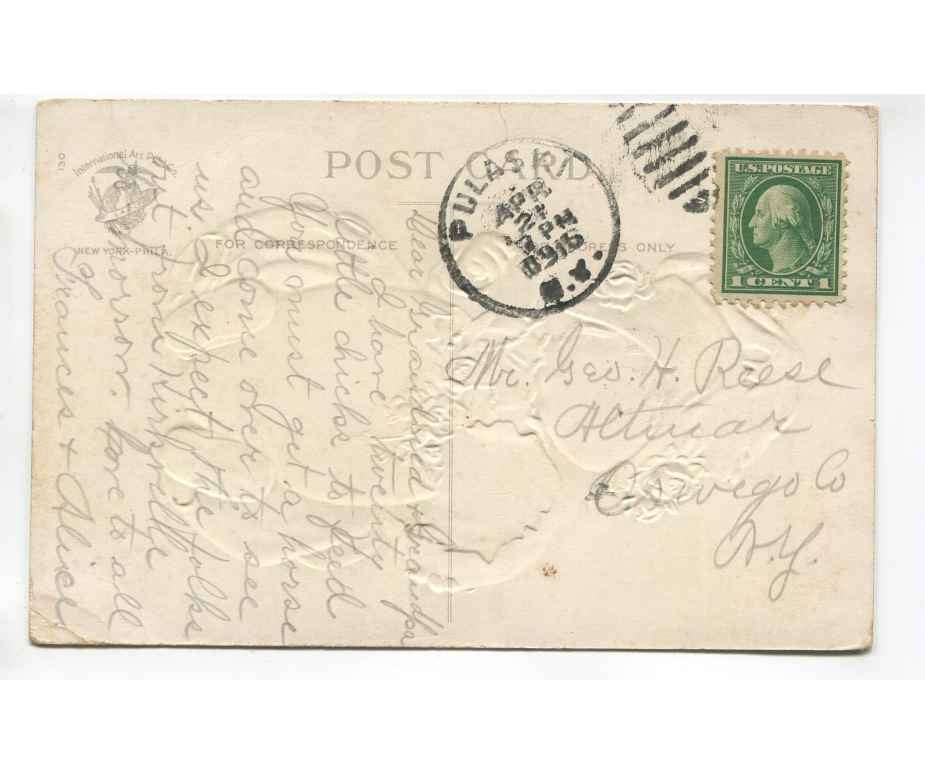 130
International Art Pub. Co.
NEW YORK-PHILA
POST CARD
FOR CORRESPONDENCE
ADDRESS ONLY
PULASKI
APR
2
PM
1915
N.Y.
U.S. POSTAGE
1 CENT 1
Dear Grandma & Grandpa
I have twenty
little chicks to feed
You must get a horse
and come over to see
us. I expect the folks
from
tomorrow. love to all
Frances & Alice
Mr. Geo. H. Reese
Altmar
Oswego Co
N.Y.